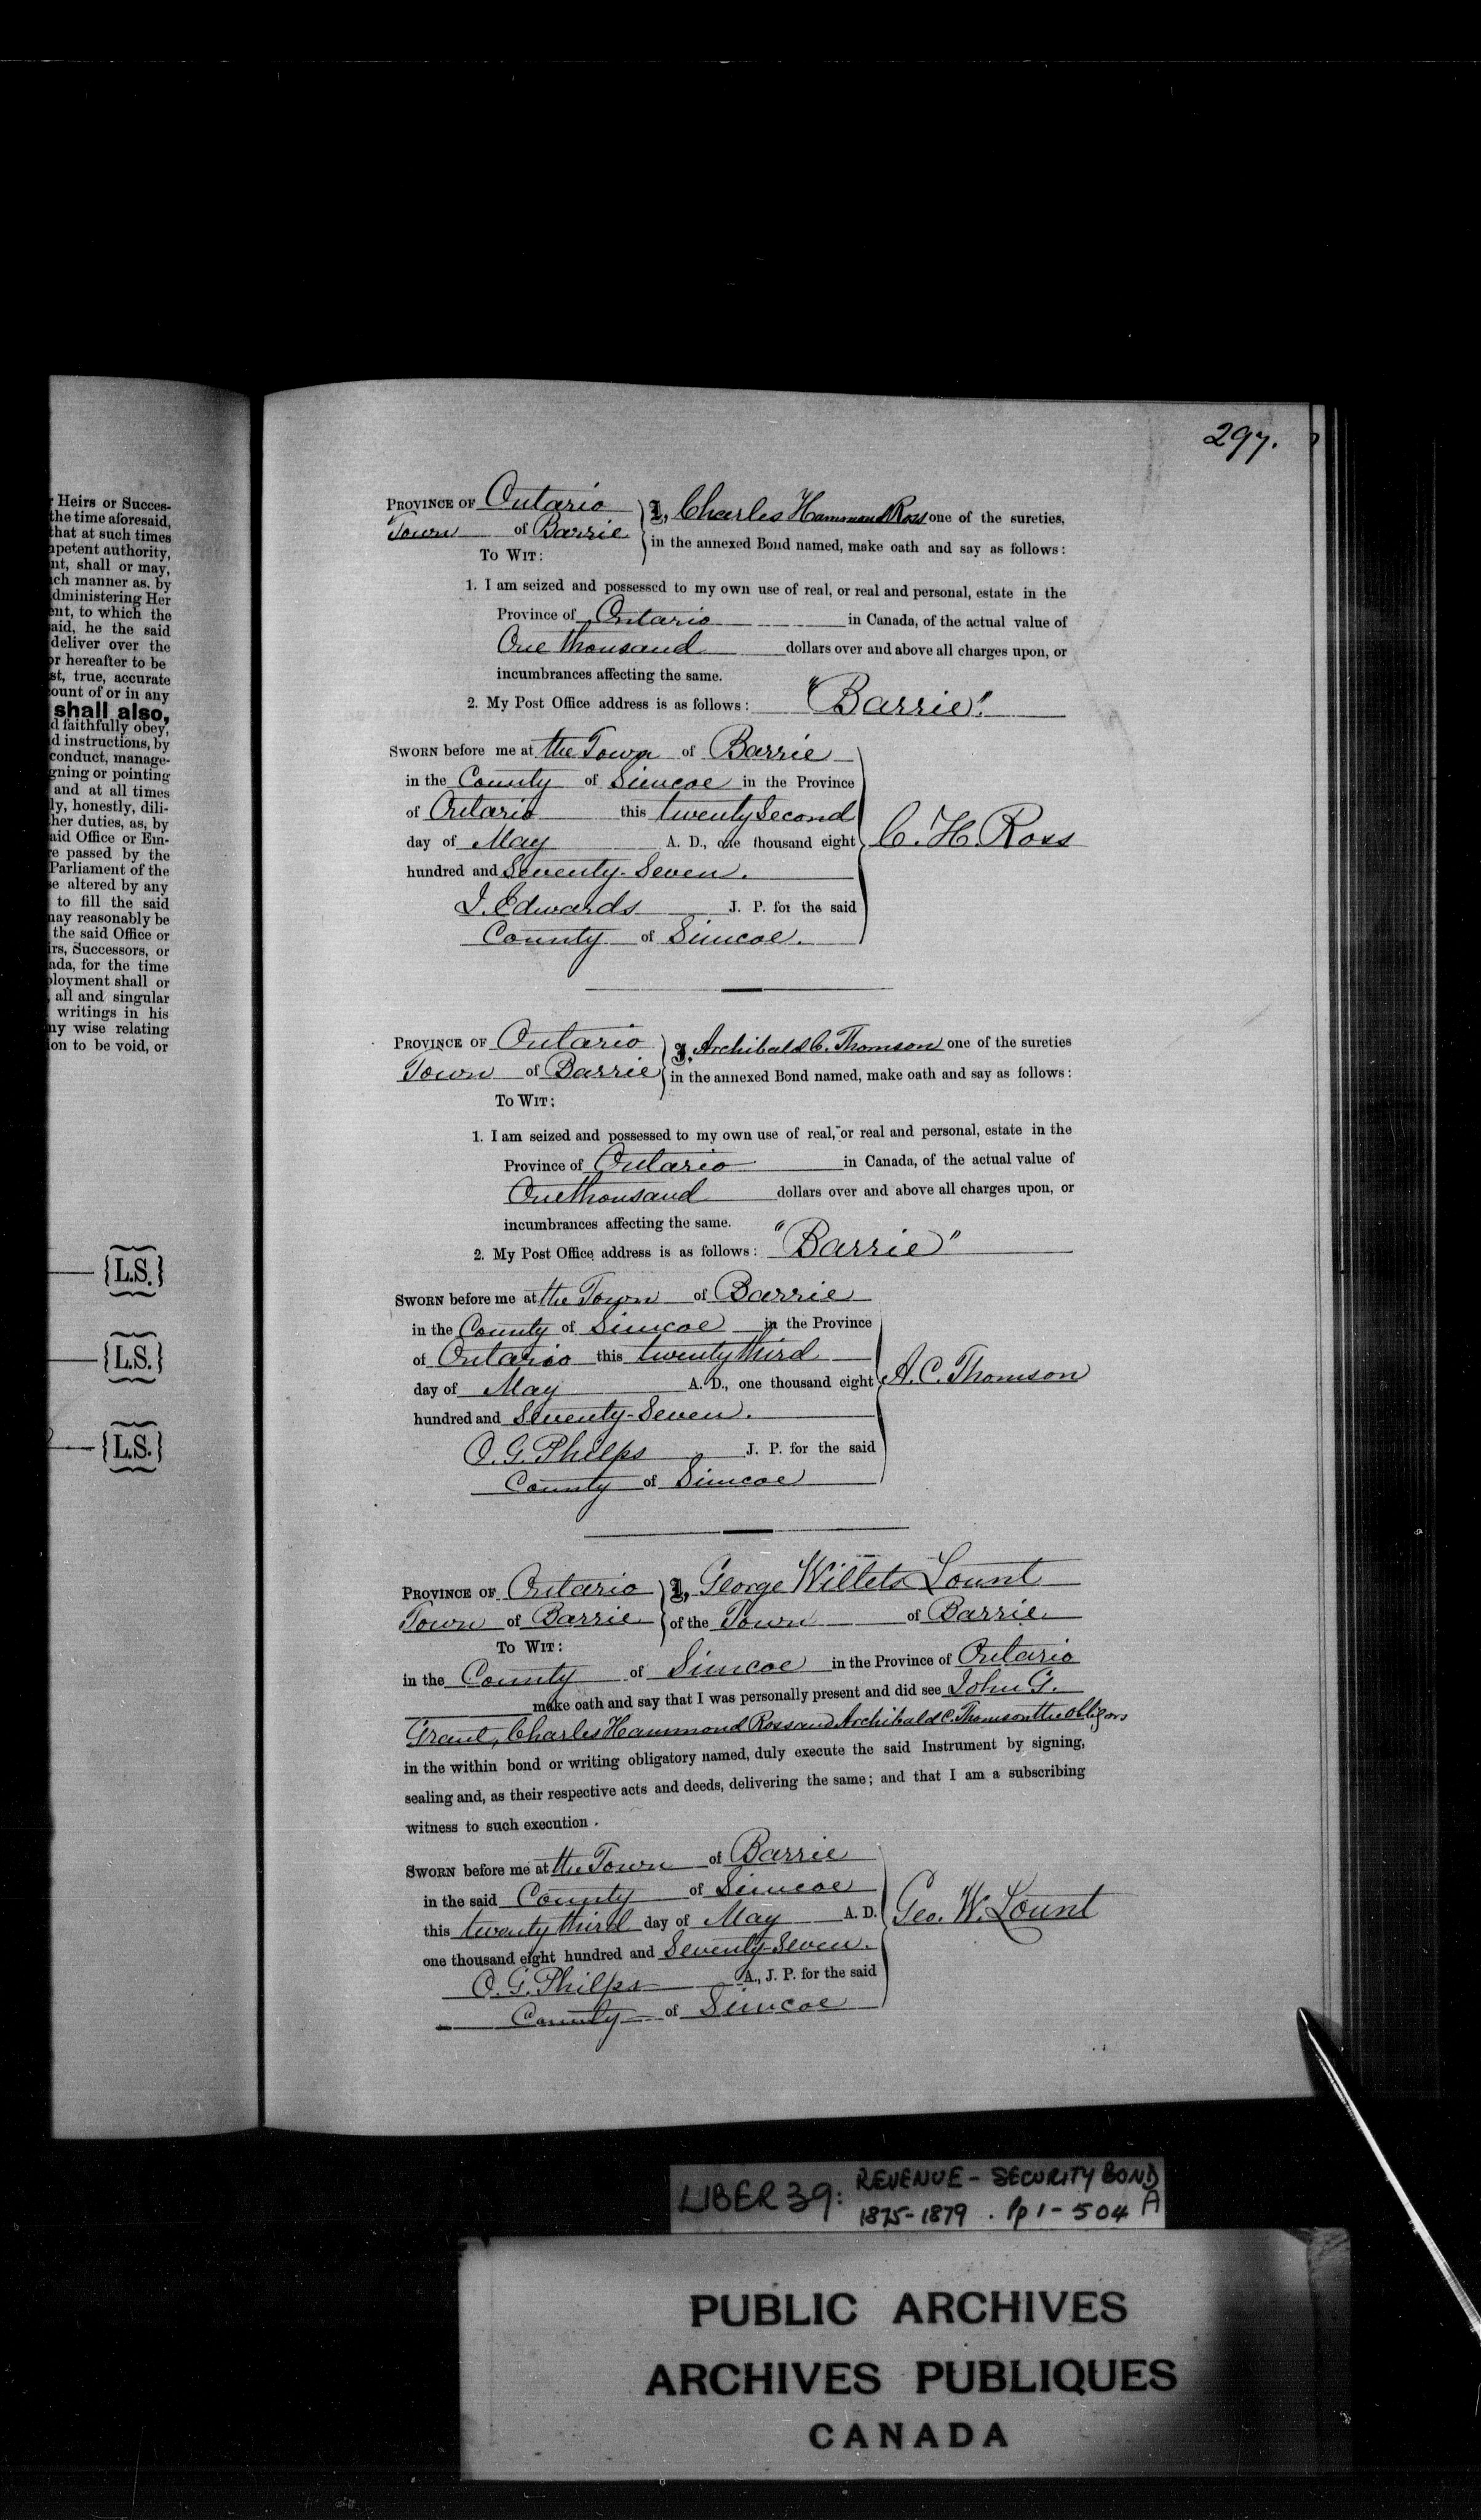 Heirs or Succes-
the time aforesaid,
that at such times
petent authority,
nt, shall or may,
ch manner as. by
dministering Her
ent, to which the
aid, he the said
deliver over the
or hereafter to be
st, true, accurate
ount of or in any
shall also,
d faithfully obey,
d instructions, by
conduct, manage-
gning or pointing
and at all times
ly, honestly, dili-
her duties, as, by
aid Office or Em-
re passed by the
Parliament of the
e altered by any
to fill the said
may reasonably be
the said Office or
irs, Successors, or
ada, for the time
ployment shall or
all and singular
writings in his
ny wise relating
ion to be void, or
{L.S.}
{L.S.}
{L.S.}
297.
PROVINCE OF Ontario
Town of Barrie
TO WIT:
I, Charles Hammond Ross one of the sureties,
in the annexed Bond named, make oath and say as follows:
1. I am seized and possessed to my own use of real, or real and personal, estate in the
Province of Ontario in Canada, of the actual value of
One thousand dollars over and above all charges upon, or
incumbrances affecting the same.
2. My Post Office address is as follows: "Barrie".
SWORN before me at the Town of Barrie
in the County of Simcoe in the Province
of Ontario this twenty second
day of May A. D., one thousand eight
hundred and Seventy-Seven.
J. Edwards J. P. for the said
County of Simcoe.
C. H. Ross
PROVINCE OF Ontario
Town of Barrie
TO WIT:
I, Archibald C. Thomson one of the sureties
in the annexed Bond named, make oath and say as follows:
1. I am seized and possessed to my own use of real, or real and personal, estate in the
Province of Ontario in Canada, of the actual value of
One thousand dollars over and above all charges upon, or
incumbrances affecting the same.
2. My Post Office address is as follows: "Barrie"
SWORN before me at the Town of Barrie
in the County of Simcoe in the Province
of Ontario this twenty third
day of May A. D., one thousand eight
hundred and Seventy-Seven.
O. G. Phelps J. P. for the said
County of Simcoe
A. C. Thomson
PROVINCE OF Ontario
Town of Barrie
TO WIT:
I, George Willets Lount
of the Town of Barrie
in the County of Simcoe in the Province of Ontario
make oath and say that I was personally present and did see John G.
Grant, Charles Hammond Ross and Archibald C. Thomson the obligors
in the within bond or writing obligatory named, duly execute the said Instrument by signing,
sealing and, as their respective acts and deeds, delivering the same; and that I am a subscribing
witness to such execution.
SWORN before me at the Town of Barrie
in the said County of Simcoe
this twenty third day of May A. D.
one thousand eight hundred and Seventy-Seven.
O. G. Philps A., J. P. for the said
County of Simcoe
Geo. W. Lount
LIBER 39: REVENUE - SECURITY BOND
1875-1879 . Pp 1 - 504 A
PUBLIC ARCHIVES
ARCHIVES PUBLIQUES
CANADA